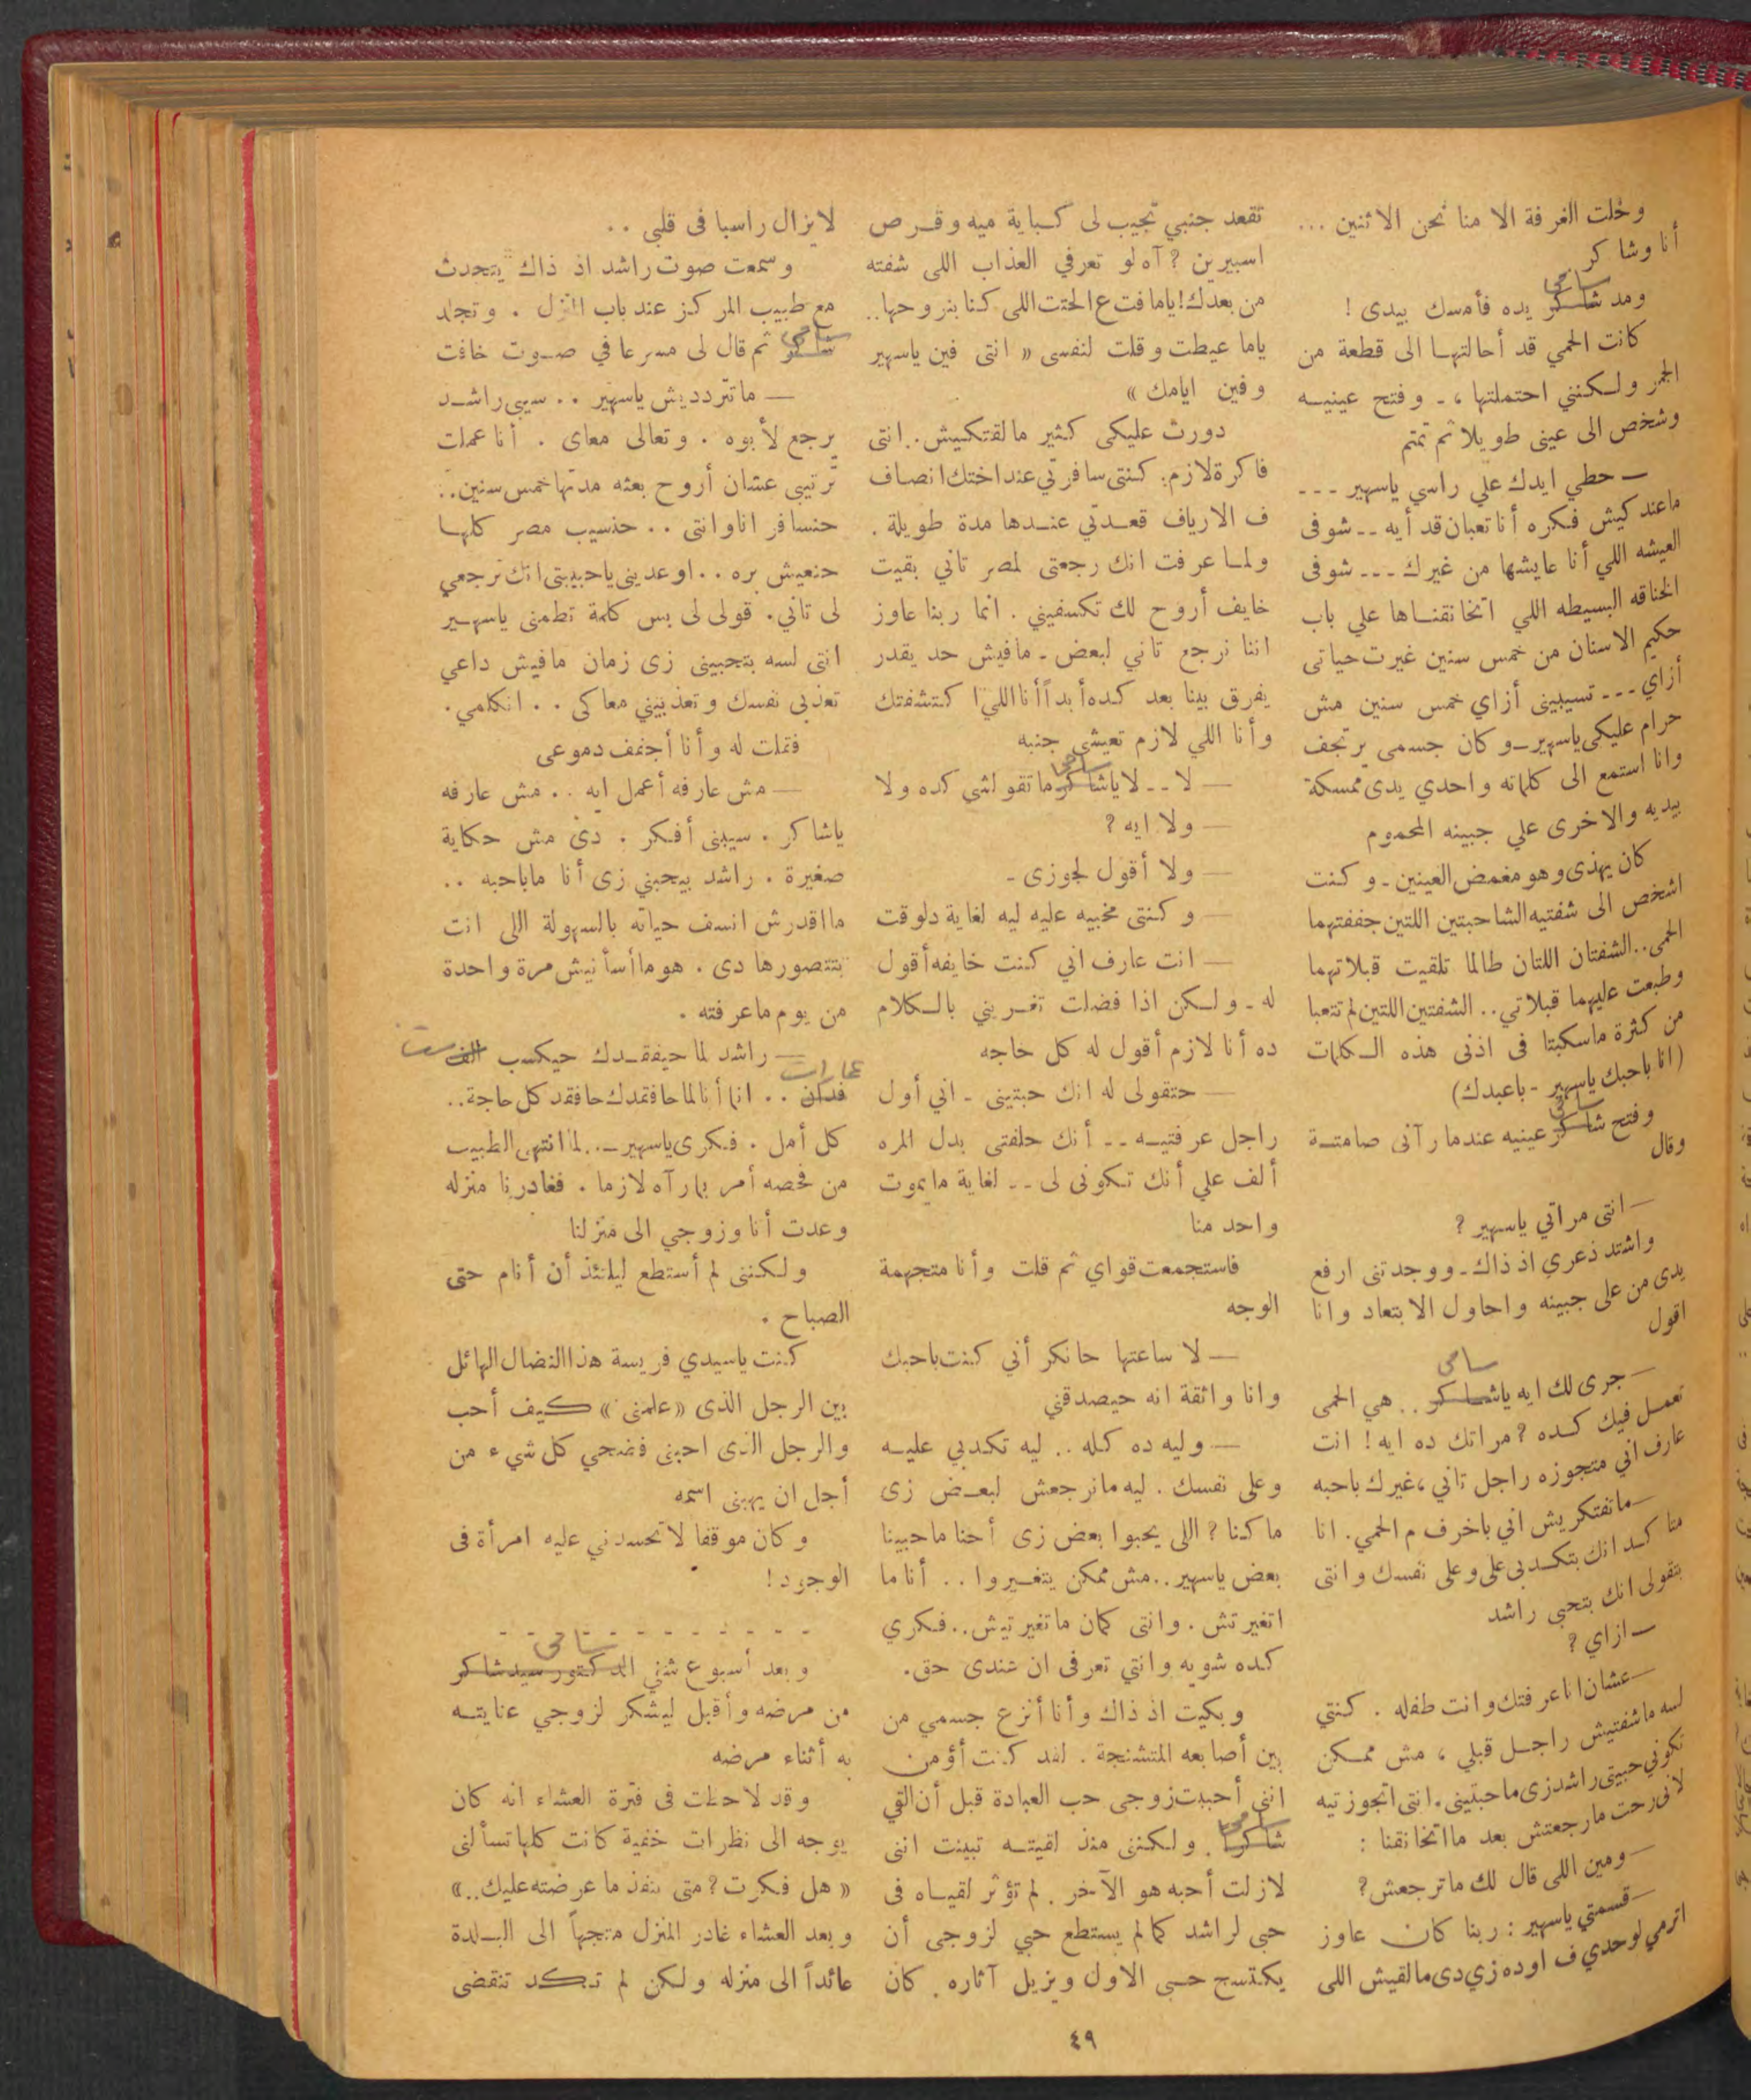 وخلت الغرفة الا منا نحن الاثنين ...
أنا وشاكر
سامى
ومد شاكر يده فأمسك بيدى !
كانت الحمي قد أحالتهـا الى قطعة من
الجمر ولـكنني احتملتها ، ـ وفتح عينيـه
وشخص الى عينى طويلا ثم تمتم
ـ حطي ايدك علي راسي ياسهير ---
ماعندكيش فـكره أنا تعبان قد أيه -- شوفى
العيشه اللي أنا عايشها من غيرك --- شوفى
الخناقه البسيطه اللي اتخانقنـاها علي باب
حكيم الاسنان من خمس سنين غيرت حياتى
أزاي --- تسيبينى أزاي خمس سنين مش
حرام عليكى ياسهير ـ وكان جسمى يرتجف
وانا استمع الى كلماته واحدي يدى ممسكة
بيديه والاخرى علي جبينه المحموم
كان يهذى وهو مغمض العينين ـ وكنت
اشخص الى شفتيه الشاحبتين اللتين جففتهما
الحمى .. الشفتان اللتان طالما تلقيت قبلاتهما
وطبعت عليهما قبلاتي .. الشفتين اللتين لم تتعبا
من كثرة ماسكبتا فى اذنى هذه الـكلمات
(انا باحبك ياسهير ـ باعبدك)
سامى
وفتح شاكر عينيه عندما رآنى صامتـة
وقال
ـ انتى مراتي ياسهير ?
واشتد ذعري اذ ذاك ـ ووجدتنى ارفع
يدى من على جبينه واحاول الابتعاد وانا
اقول
سامى
ـ جرى لك ايه ياشاكر .. هي الحمى
تعمـل فيك كـده ? مراتك ده ايه ! انت
عارف اني متجوزه راجل تاني ، غيرك باحبه
ـ ماتفتكريش اني باخرف م الحمي . انا
متاكـد انك بتكـدبى على وعلى نفسك وانتى
بتقولى انك بتحبى راشد
ـ ازاي ?
ـ عشان انا عرفتك وانت طفله . كنتي
لسه ماشفتيش راجـل قبلي ، مش ممـكن
تكوني حبيتى راشد زى ماحبتيني . انتى اتجوزتيه
لانى رحت مارجعتش بعد مااتخانقنا :
ـ ومين اللى قال لك ماترجعش ?
ـ قسمتي ياسهير : ربنا كان عاوز
اترمي لوحدي ف اوده زي دى مالقيش اللى
تقعد جنبي تجيب لى كـباية ميه وقـرص
اسبيرين ? آه لو تعرفي العذاب اللى شفته
من بعدك ! ياما فت ع الحتت اللى كنا بنروحها ..
ياما عيطت وقلت لنفسى « انتى فين ياسهير
وفين ايامك »
دورت عليكى كثير مالقتكيش .. انتى
فاكرة لازم . كنتى سافرتي عند اختك انصـاف
ف الارياف قعـدتي عنـدها مدة طويلة .
ولمـا عرفت انك رجعتى لمصر تاني بقيت
خايف أروح لك تكسفيني . انما ربنا عاوز
اننا نرجع تاني لبعض ـ مافيش حد يقدر
يفرق بينا بعد كـده أبداً أنا اللي اكتشفتك
وأنا اللي لازم تعيشى جنبه
سامى
ـ لا -- لا ياشاكر ماتقولشى كده ولا
ـ ولا ايه ?
ـ ولا أقول لجوزى ـ
ـ وكنتى مخبيه عليه ليه لغاية دلوقت
ـ انت عارف اني كنت خايفه أقول
له ـ ولـكن اذا فضلت تغـريني بالـكلام
ده أنا لازم أقول له كل حاجه
ـ حتقولى له انك حبتينى ـ اني أول
راجل عرفتيـه -- أنك حلفتى بدل المره
ألف علي أنك تـكونى لى -- لغاية مايموت
واحد منا
فاستجمعت قواي ثم قلت وأنا متجهمة
الوجه
ـ لا ساعتها حانكر أني كنت باحبك
وانا واثقة انه حيصدقني
ـ وليه ده كله .. ليه تكدبي عليـه
وعلى نفسك . ليه مانرجعش لبعـض زى
ما كنا ? اللى يحبوا بعض زى أحنا ماحبينا
بعض ياسهير .. مش ممكن يتغـيروا .. أنا ما
اتغيرتش . وانتى كمان ماتغيرتيش .. فـكري
كـده شويه وانتي تعرفى ان عندى حق .
وبكيت اذ ذاك وأنا أنزع جسمي من
بين أصابعه المتشنجة . لقد كنت أؤمن
انني أحببت زوجى حب العبادة قبل أن القي
سامى
شاكرا . ولـكننى منذ لقيتـه تبينت اننى
لازلت أحبه هو الآخر . لم تؤثر لقيـاه فى
حبى لراشد كما لم يستطع حبي لزوجى أن
يكتسح حـبى الاول ويزيل آثاره . كان
لايزال راسبا فى قلبى ..
وسمعت صوت راشد اذ ذاك يتحدث
مع طبيب المركز عند باب المنزل . وتجلد
سامى
شاكر ثم قال لى مسرعا في صـوت خافت
ـ ماتتردديش ياسهير .. سيبى راشـد
يرجع لأبوه . وتعالى معاى . أنا عملت
ترتيبى عشان أروح بعثه مدتها خمس سنين ..
حنسافر انا وانتى .. حنسيب مصر كلهـا
حنعيش بره .. اوعدينى ياحبيبتى انك ترجعى
لى تاني . قولى لى بس كلمة تطمنى ياسهـير
انتى لسه بتحبينى زى زمان مافيش داعي
تعذبى نفسك وتعذبيني معاكى .. اتكلمي .
فقلت له وأنا أجفف دموعى
ـ مش عارفه أعمل ايه .. مش عارفه
ياشاكر . سيبنى أفـكر . دى مش حكاية
صغيرة . راشد بيحبني زى أنا ماباحبه ..
مااقدرش انسف حياته بالسهولة اللى انت
بتتصورها دى . هو ماأسأنيش مرة واحدة
من يوم ماعرفته .
ـ راشد لما حيفقـدك حيكسب الف ست
عمارات
فدان .. انما أنا لما حافقدك حافقد كل حاجة ..
كل أمل . فـكرى ياسهير ـ .. لما انتهى الطبيب
من فحصه أمر بما رآه لازما . فغادرنا منزله
وعدت أنا وزوجي الى منزلنا
ولـكننى لم أستطع ليلتئذ أن أنام حتى
الصباح .
كنت ياسيدي فريسة هذا النضال الهائل
بين الرجل الذى « علمنى » كيف أحب
والرجل الذى احبنى فضحي كل شيء من
أجل ان يهبنى اسمه
وكان موقفا لاتحسدني عليه امرأة فى
الوجود !
- - - - - - - - - -
سامى
وبعد أسبوع شفي الدكتور سيد شاكر
من مرضه وأقبل ليشكر لزوجي عنايتـه
به أثناء مرضه
وقد لاحظت فى فترة العشاء انه كان
يوجه الى نظرات خفية كانت كلها تسألنى
« هل فـكرت ? متى ننفذ ما عرضته عليك .. »
وبعد العشاء غادر المنزل متجهاً الى البـلدة
عائداً الى منزله ولـكن لم تـكد تنقضى
٤٩